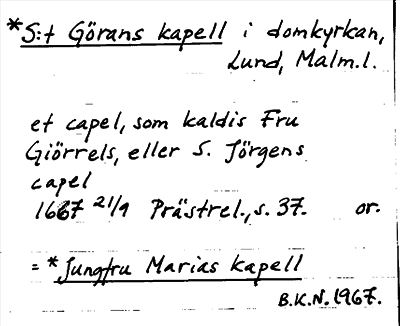 *S:t Görans kapell i domkyrkan,
Lund, Malm.l.
et capel, som kaldis Fru
Giörrels, eller S. Jörgens
capel
1667 21/1 Prästrel., s. 37. or.
= *Jungfru Marias kapell
B.K.N. 1967.